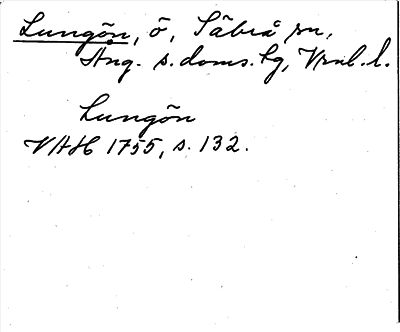 Lungön, ö, Säbrå sn,
Ång. s. doms. hg, Vrnl. l.
Lungön
VAH 1755, s. 132.